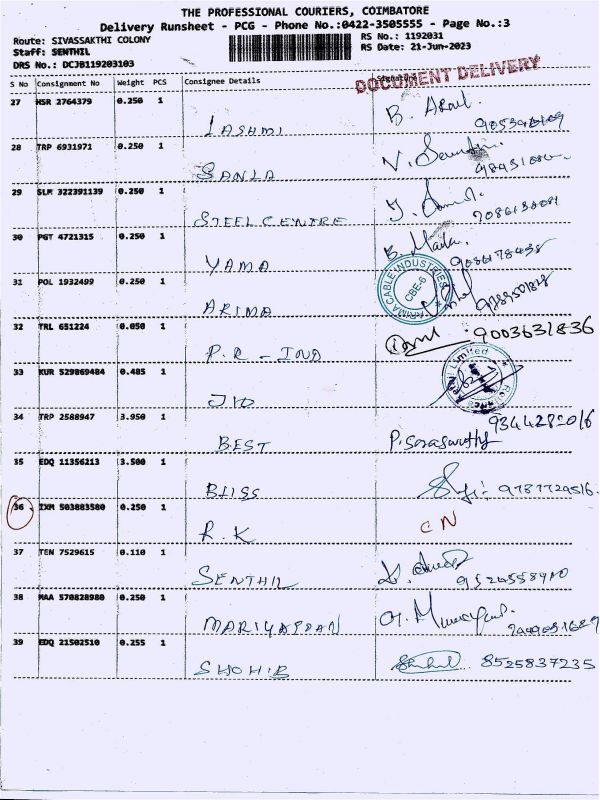 THE PROFESSIONAL COURIERS, COIMBATORE
Delivery Runsheet - PCG - Phone No.:0422-3505555 - Page No.:3
Route: SIVASSAKTHI COLONY RS No.: 1192031
Staff: SENTHIL RS Date: 21-Jun-2023
DRS No.: DCJB119203103
DOCUMENT DELIVERY
S No Consignment No Weight PCS Consignee Details Signature
27 HSR 2764379 0.250 1
LASHMI B.
28 TRP 6931971 0.250 1
SANLA V.
29 SLM 322391139 0.250 1
STEEL CENTRE
30 PGT 4721315 0.250 1
YAMA B.
31 POL 1932499 0.250 1
ARIMA CABLE INDUSTRIES CBE-6
ARIMA
32 TRL 651224 0.050 1
P.R - IND 9003631836
33 KUR 529869484 0.485 1
Limited
JID
34 TRP 2588947 3.950 1
BEST P. Saraswathy
35 EDQ 11356213 3.500 1
BLISS
36 IXM 503883580 0.250 1
R.K CN
37 TEN 7529615 0.110 1
SENTHIL
38 MAA 570828980 0.250 1
MARIYAPPAN
39 EDQ 21502510 0.255 1
SHOHIB 8525837235